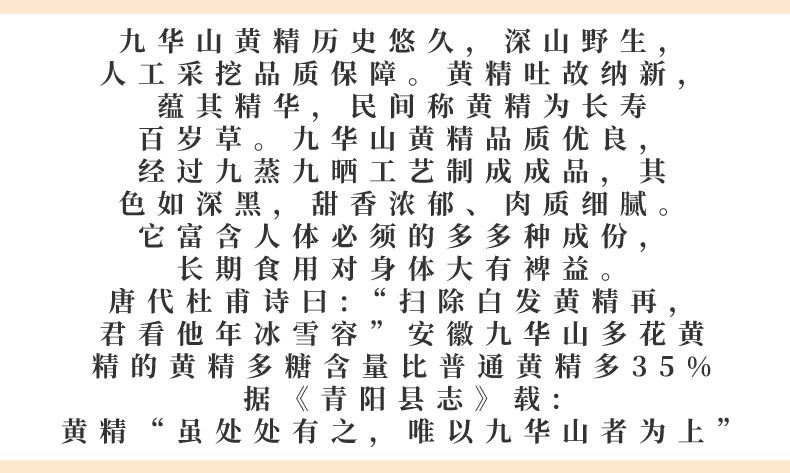 九华山黄精历史悠久，深山野生，
人工采挖品质保障。黄精吐故纳新，
蕴其精华，民间称黄精为长寿
百岁草。九华山黄精品质优良，
经过九蒸九晒工艺制成成品，其
色如深黑，甜香浓郁、肉质细腻。
它富含人体必须的多多种成份，
长期食用对身体大有裨益。
唐代杜甫诗曰:“扫除白发黄精再，
君看他年冰雪容”安徽九华山多花黄
精的黄精多糖含量比普通黄精多35%
据《青阳县志》载:
黄精“虽处处有之，唯以九华山者为上”